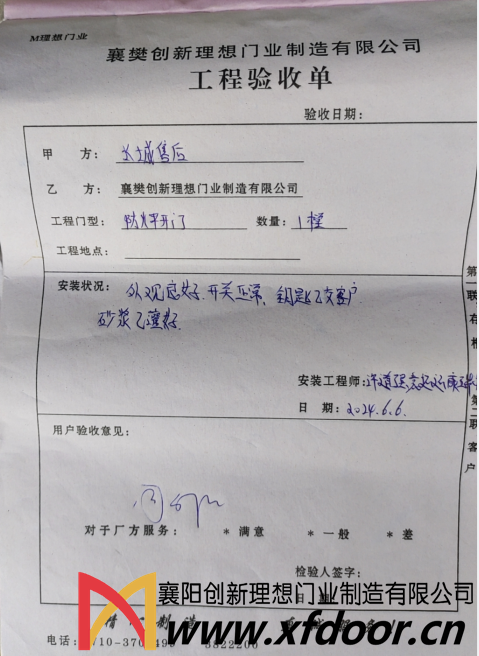 M理想门业
襄樊创新理想门业制造有限公司
工程验收单
验收日期：
甲 方： 长城售后
乙 方： 襄樊创新理想门业制造有限公司
工程门型： 防火平开门 数量： 1樘
工程地点：
安装状况： 外观良好.开关正常、钥匙已交客户
砂浆已灌好
安装工程师：
日 期：2024.6.6.
用户验收意见：
对于厂方服务： * 满意 * 一般 * 差
检验人签字：
襄阳创新理想门业制造有限公司
www.xfdoor.cn
电话：
第一联 存根
第二联 客户